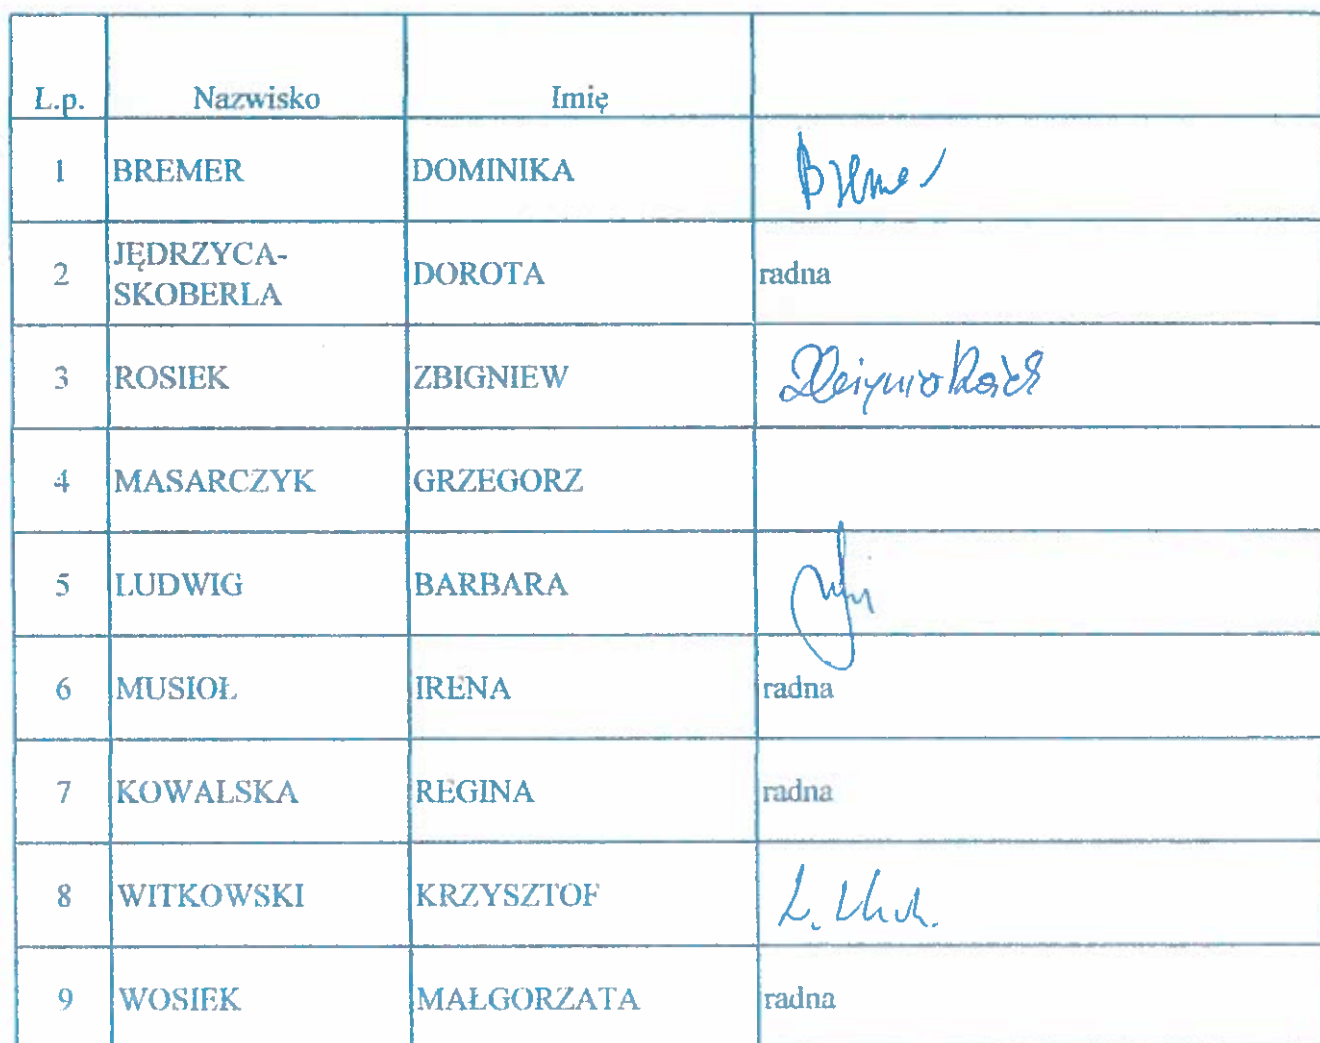 L.p. Nazwisko Imię
1 BREMER DOMINIKA Bremer
2 JĘDRZYCA-SKOBERLA DOROTA radna
3 ROSIEK ZBIGNIEW
4 MASARCZYK GRZEGORZ
5 LUDWIG BARBARA
6 MUSIOŁ IRENA radna
7 KOWALSKA REGINA radna
8 WITKOWSKI KRZYSZTOF
9 WOSIEK MAŁGORZATA radna